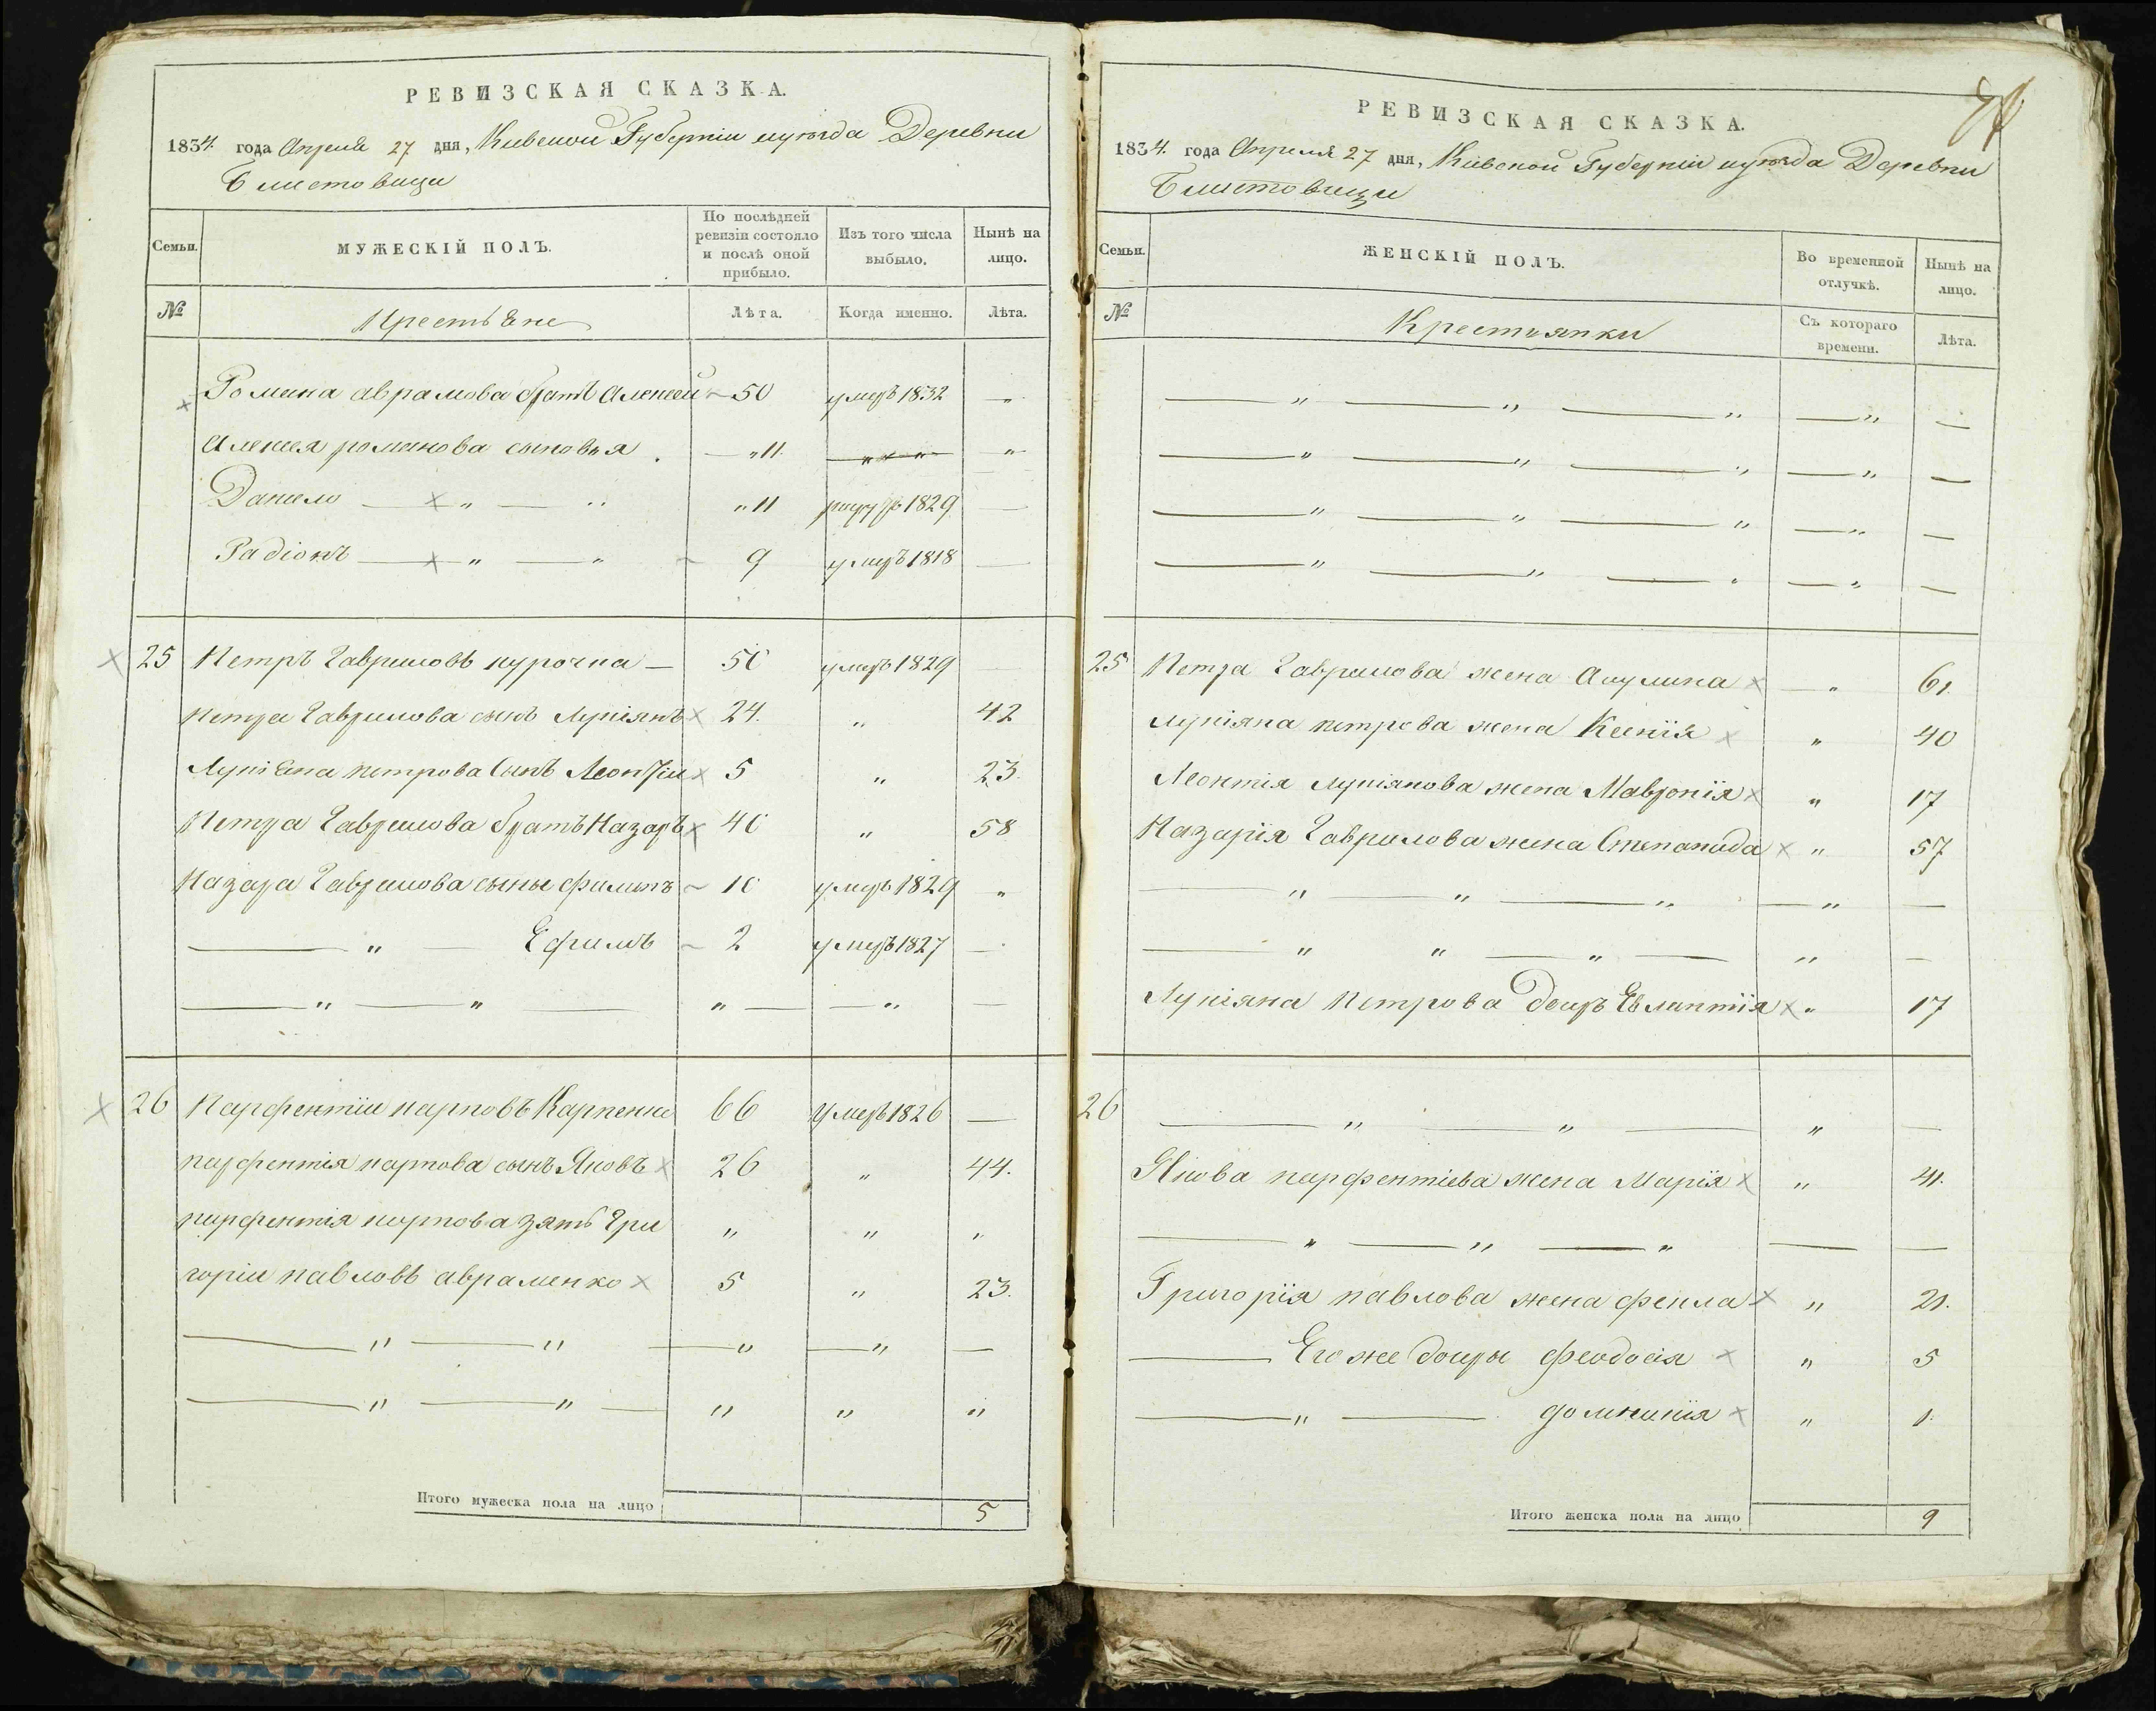 РЕВИЗСКАЯ СКАЗКА.
1834. года Апреля 27 дня, Киевской Губернїи и уезда Деревни
Блистовици
Семьи.
МУЖЕСКІЙ ПОЛЪ.
По послѣдней ревизіи состояло и послѣ оной прибыло.
Изъ того числа выбыло.
Нынѣ на лицо.
№
Крестьяне
Лѣта.
Когда именно.
Лѣта.
Романа аврамова братъ Алексей 50 умеръ 1832 „
Алексея романова сыновья „ 11. „ „ „ „
Данило „ „ „ 11 1829
Радіонъ „ „ 9 умеръ 1818
25 Петръ Гавриловъ курочка 50 умеръ 1829
Петра Гаврилова сынъ Лукіянъ 24. „ 42
Лукіяна петрова Сынъ Леонтій 5 „ 23.
Петра Гаврилова братъ Назаръ 40 „ 58
Назара Гаврилова сыны филипъ 10 умеръ 1829 „
„ Ефимъ 2 умеръ 1827
„ „ „ „
26 Парфентїй карповъ Карпенко 66 Умеръ 1826
парфентія карпова сынъ Яковъ 26 „ 44.
парфентія карпова зять Гри „ „ „
горій павловъ авраменко 5 „ 23.
„ „ „ „
„ „ „ „ „
Итого мужеска пола на лицо 5
РЕВИЗСКАЯ СКАЗКА.
1834. года Апреля 27 дня, Киевской Губернїи и уезда Деревни
Блистовици
Семьи.
ЖЕНСКІЙ ПОЛЪ.
Во временной отлучкѣ.
Нынѣ на лицо.
№
Крестиянки
Съ котораго времени.
Лѣта.
„ „ „ „
„ „ „ „
„ „ „ „
„ „ „ „
25 Петра Гаврилова жена Акулина „ 61.
Лукіяна петрова жена Ксенїя „ 40
Леонтия лукіянова жена Мавронїя „ 17
Назарїя Гаврилова жена Степанида „ 57
„ „ „ „
„ „ „ „
Лукіяна Петрова дочръ Евлантїя „ 17
26 „ „ „
Якова парфентіева жена Марїя „ 41.
„ „ „
Григорїя павлова жена фекла „ 21.
Его же дочры феодосія „ 5
„ домникїя „ 1.
Итого женска пола на лицо 9